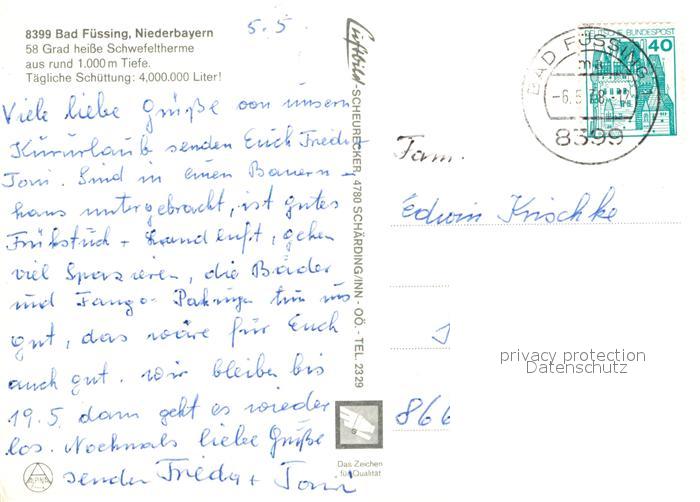 8399 Bad Füssing, Niederbayern
58 Grad heiße Schwefeltherme
aus rund 1.000 m Tiefe.
Tägliche Schüttung: 4,000.000 Liter!
5.5.
Viele liebe Grüße von unserm
Kururlaub senden Euch Frieda +
Toni. Sind in einen Bauern-
haus untergebracht, ist gutes
Frühstück + Landluft, gehen
viel Spazieren, die Bäder
und Fango-Pakungen tun uns
gut, das wäre für Euch
auch gut. Wir bleiben bis
19.5. dann geht es wieder
los. Nochmals liebe Grüße
senden Frieda + Toni
Luftbild-SCHEURECKER, 4780 SCHÄRDING/INN - OÖ. - TEL. 2329
Das Zeichen
für Qualität
DEUTSCHE BUNDESPOST
40
BAD FÜSSING
-6.5.78
8399
Fam.
Edwin Krischke
866
privacy protection
Datenschutz